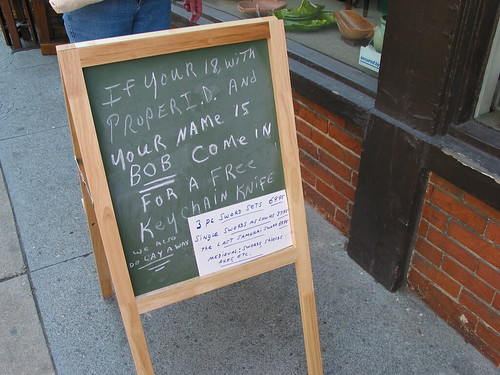 If YOUR 18, WITH
PROPER I.D. AND
YOUR NAME IS
BOB COME IN
FOR A FREE
KeyCHAIN KNIFE
WE ALSO
DO LAYAWAY
3 PC SWORD SETS
SINGLE SWORDS AS LOW AS
THE LAST SAMURAI SWORD
MEDIEVAL SWORDS, SHIELDS,
AXES ETC.